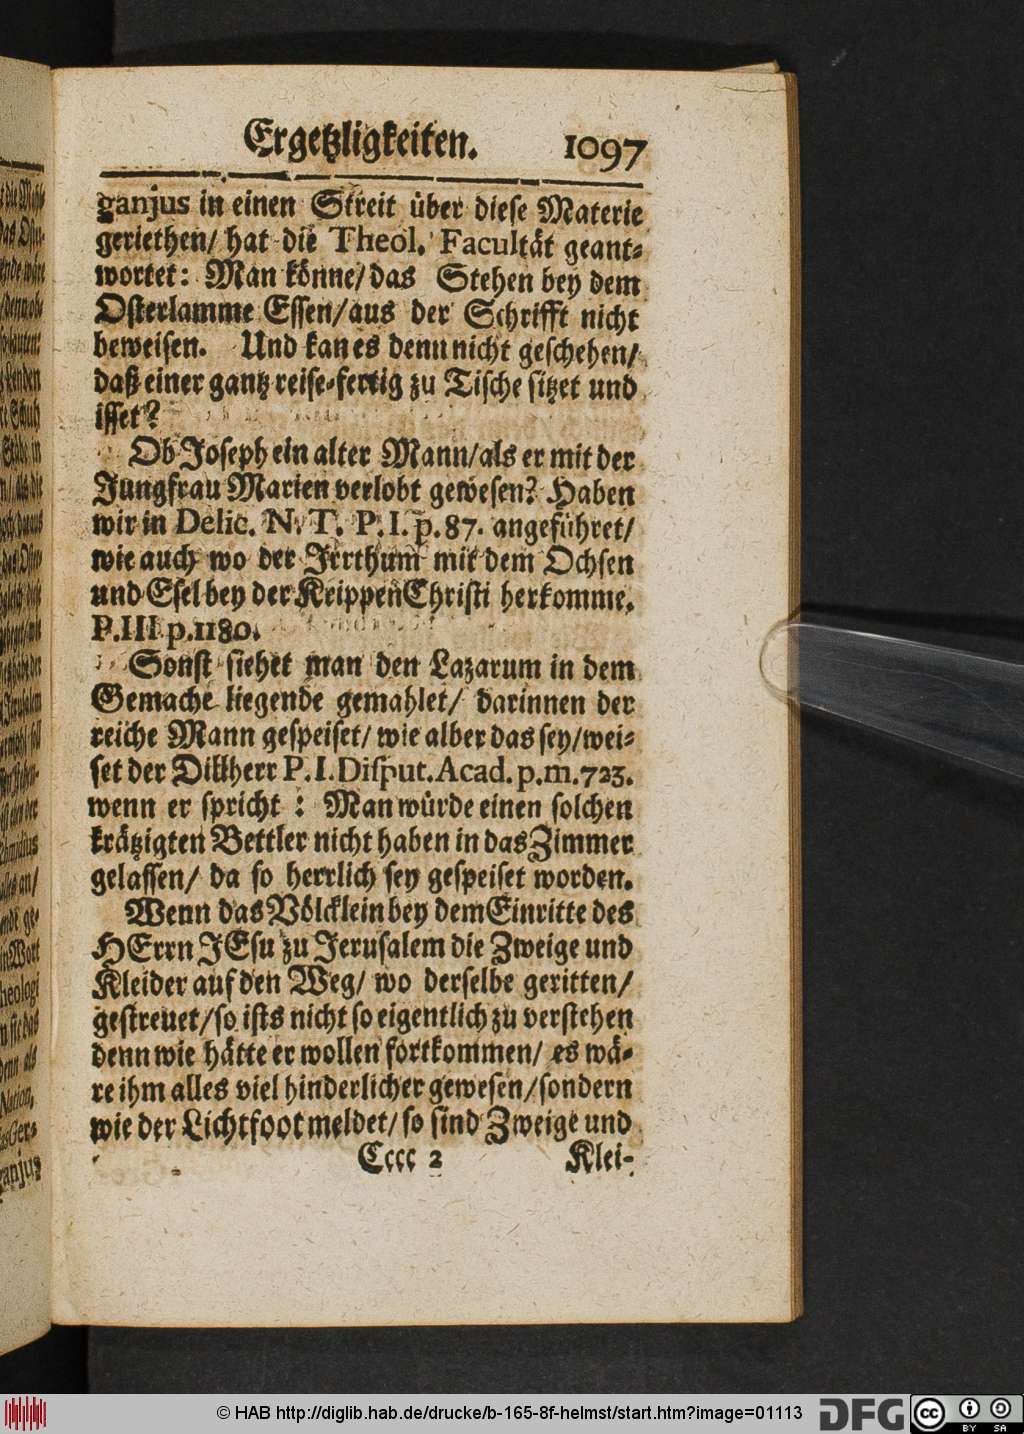 Ergetzligkeiten. 1097
ganjus in einen Streit über diese Materie
geriethen/ hat die Theol. Facultät geant-
wortet: Man könne/ das Stehen bey dem
Osterlamme Essen/ aus der Schrifft nicht
beweisen. Und kan es denn nicht geschehen/
daß einer gantz reise-fertig zu Tische sitzet und
isset?
Ob Joseph ein alter Mann/ als er mit der
Jungfrau Marien verlobt gewesen? Haben
wir in Delic. N. T. P. I. p. 87. angeführet/
wie auch wo der Irrthum mit dem Ochsen
und Esel bey der Krippen Christi herkomme,
P. III p. 1180.
Sonst siehet man den Lazarum in dem
Gemache liegende gemahlet/ darinnen der
reiche Mann gespeiset/ wie alber das sey/ wei-
set der Dillherr P. I. Disput. Acad. p. m. 723.
wenn er spricht: Man würde einen solchen
krätzigten Bettler nicht haben in das Zimmer
gelassen/ da so herrlich sey gespeiset worden.
Wenn das Völcklein bey dem Einritte des
HErrn JEsu zu Jerusalem die Zweige und
Kleider auf den Weg/ wo derselbe geritten/
gestreuet/ so ists nicht so eigentlich zu verstehen
denn wie hätte er wollen fortkommen/ es wä-
re ihm alles viel hinderlicher gewesen/ sondern
wie der Lichtfoot meldet/ so sind Zweige und
Cccc 2 Klei-
© HAB http://diglib.hab.de/drucke/b-165-8f-helmst/start.htm?image=01113
DFG
cc BY SA